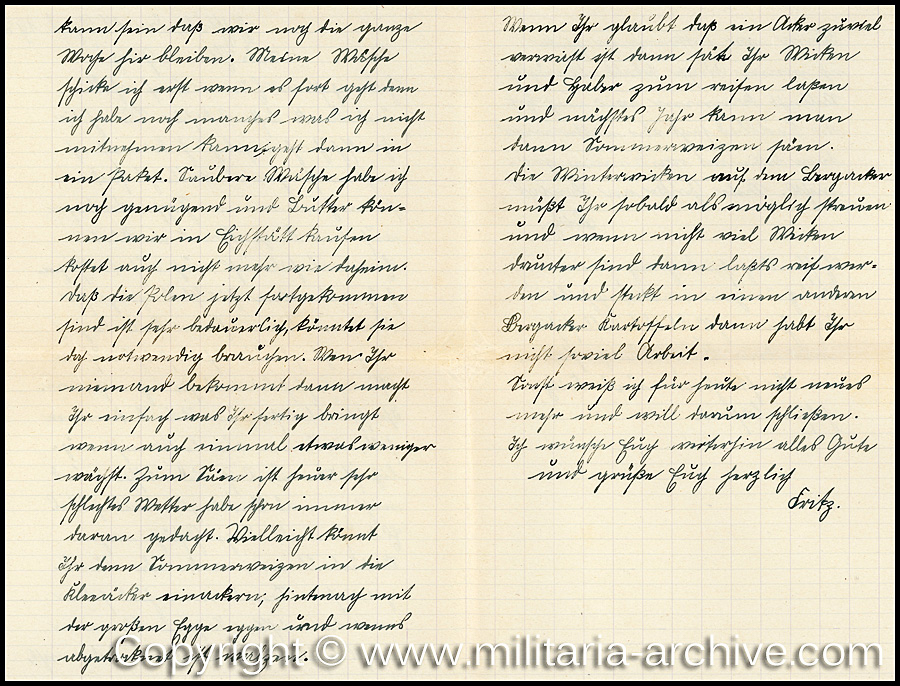 kann sein daß wir noch die ganze
Woche hir bleiben. Meine Wäsche
schicke ich erst wenn es fort geht denn
ich habe noch manches was ich nicht
mitnehmen kann, geht dann in
ein Paket. Saubere Wäsche habe ich
noch genügend und Butter kön-
nen wir in Eichstätt kaufen
kostet auch nicht mehr wie daheim.
Daß die Polen jetzt fortgekommen
sind ist sehr bedauerlich, könntet sie
doch notwendig brauchen. Wen Ihr
niemand bekommt dann macht
Ihr einfach was Ihr fertig bringt
wenn auch einmal etwas weniger
wächst. Zum Säen ist heuer sehr
schlechtes Wetter habe schon immer
daran gedacht. Vielleicht könnt
Ihr dem Sommerweizen in die
Kleeäcker einackern, hintenach mit
der großen Egge eggen und wenns
abgetrocknet ist walzen.
Wenn Ihr glaubt daß ein Acker zuviel
verwischt ist dann sät Ihr Wicken
und Haber zum reifen laßen
und nächstes Jahr kann man
dann Sommerweizen säen.
Die Winterwicken auf dem Bergacker
müßt Ihr sobald als möglich streuen
und wenn nicht viel Wicken
drunter sind dann laßts reif wer-
den und steckt in einen anderen
Bergacker Kartoffeln dann habt Ihr
nicht soviel Arbeit.
Sonst weiß ich für heute nicht neues
mehr und will darum schließen.
Ich wünsche Euch weiterhin alles Gute
und grüße Euch herzlich
Fritz.
Copyright © www.militaria-archive.com